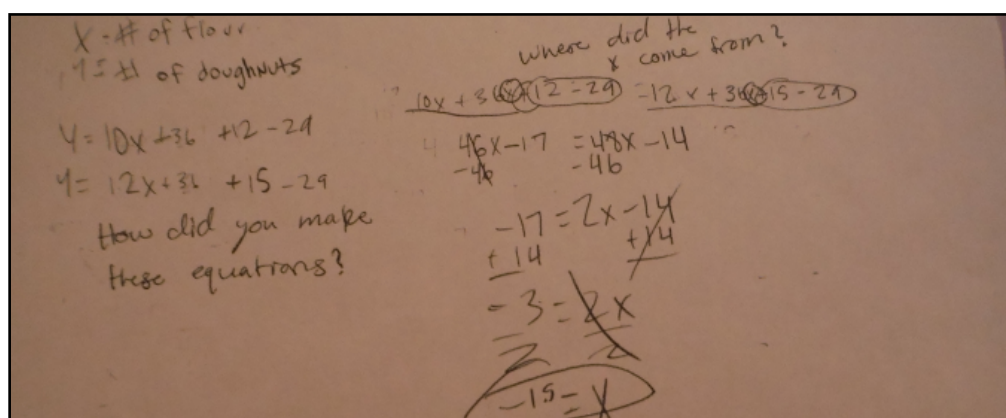 X = # of flour
Y = # of doughnuts
Y = 10x + 36 + 12 - 29
Y = 12x + 36 + 15 - 29
How did you make
these equations?
where did the
x come from?
10x + 36x + 12 - 29 = 12x + 36x + 15 - 29
46x - 17 = 48x - 14
-46 -46
-17 = 2x - 14
+14 +14
-3 = 2x
2 2
-15 = x